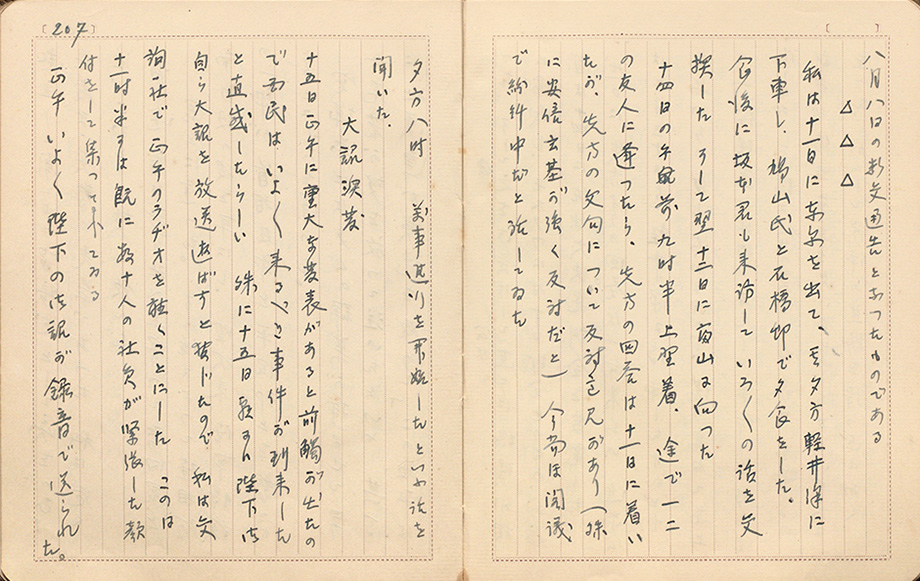 〔207〕
八月八日の通告とあつたものである
△△△
私は十一日に東京を出て、其夕方軽井沢に
下車し、鳩山氏と石橋邸で夕食をした。
食後に坂本君も来訪していろ〱の話を交
換した そして翌十二日に富山に向つた
十四日の午前九時半上野着、途で一二
の友人に逢つたら、先方の回答は十一日に着い
たが、先方の文句について反対意見があり(殊
に安倍玄基が強く反対だと) 今尚ほ閣議
で紛糾中だと話してゐた
夕方八時 万事進行を開始したといふ話を
聞いた。
大詔渙発
十五日正午に重大な発表があると前触が出たの
で国民はいよ〱来るべき事件が到来した
と直感したらしい 殊に十五日朝 陛下は
自ら大詔を放送遊ばすと報じたので 私は交
詢社で正午のラヂオを聴くことにした
十一時半には既に数十人の社員が緊張した顔
付をして集つて来てゐる
正午いよ〱陛下の御詔が録音で送られた。